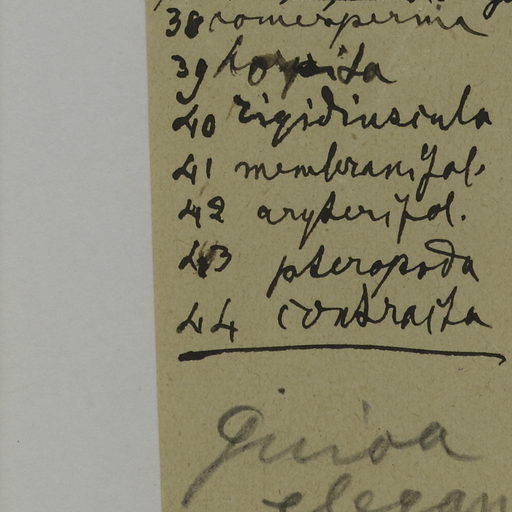 38 comesperma
39 hospita
40 rigidiuscula
41 membranifol.
42 aryterifol.
43 pteropoda
44 contracta
Guioa
elegan